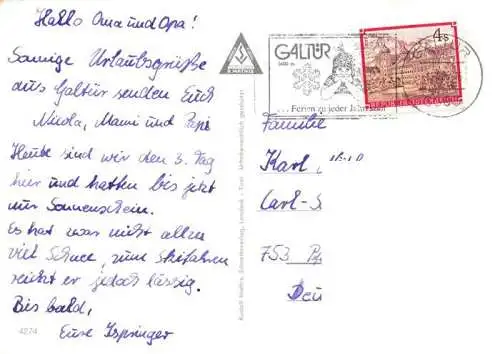 Hallo Oma und Opa!
Sonnige Urlaubsgrüße
aus Galtür senden Euch
Nicola, Mami und Papi
Heute sind wir den 3. Tag
hier und hatten bis jetzt
nur Sonnenschein.
Es hat zwar nicht allzu
viel Schnee, zum Skifahren
reicht er jedoch lässig.
Bis bald,
Eure Ispringer
4274
GALTÜR
... Ferien zu jeder Jahreszeit
4 S
REPUBLIK ÖSTERREICH
Familie
Karl
Carl-S
753 Pf
Deu